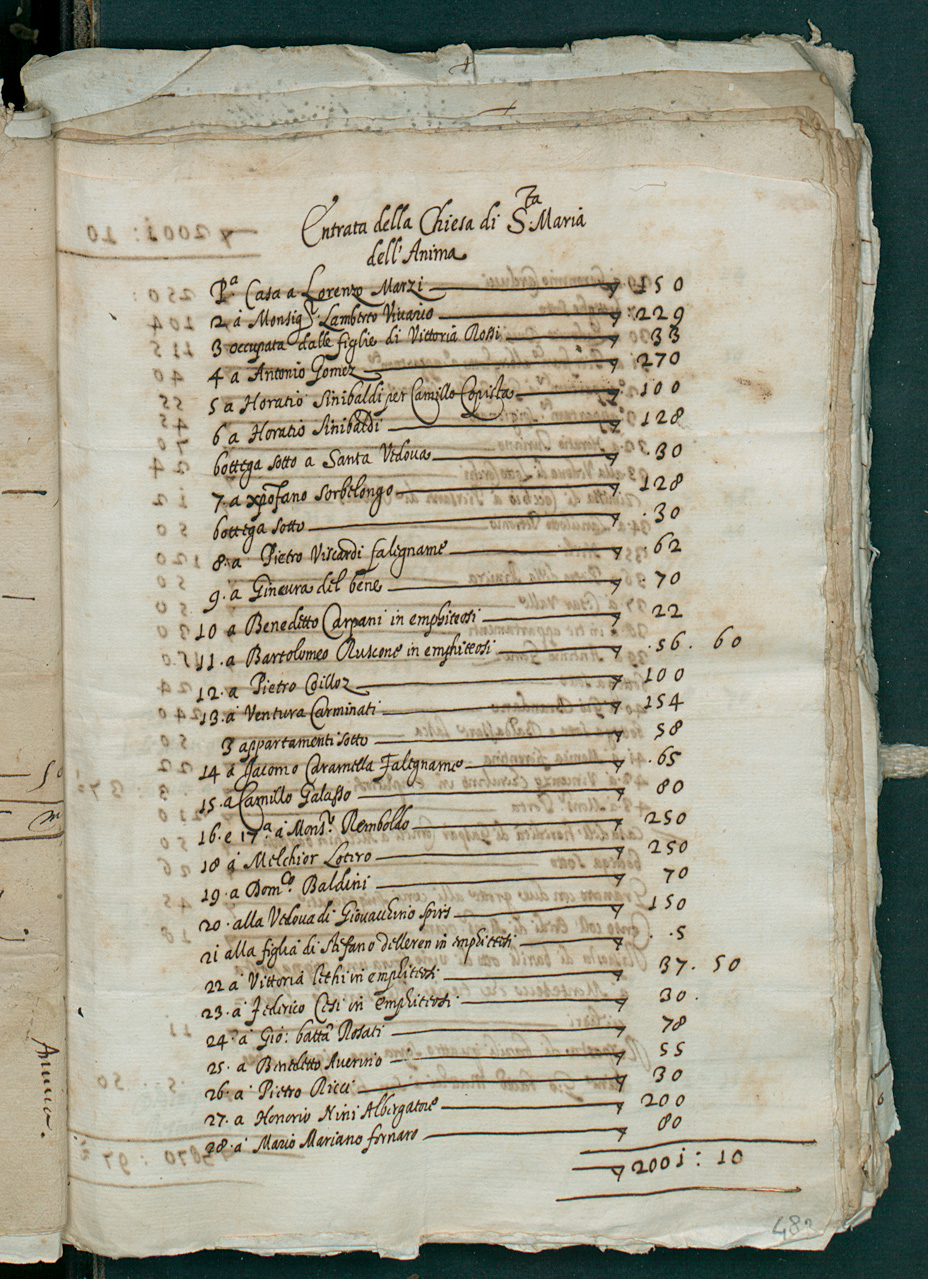 Entrata della Chiesa di S.ta Maria
dell'Anima
P.a Casa a Lorenzo Marzi 150
2 a Monsig.r Lamberto Vivario 229
3 occupata dalle figlie di Vittoria Rossi 33
4 a Antonio Gomez 270
5 a Horatio Sinibaldi per Camillo Copista 100
6 a Horatio Sinibaldi 128
bottega sotto a Santa Vedova 30
7. a xpofano sorbelongo 128
bottega sotto 30
8. a Pietro Viscardi falegname 62
9. a Ginevra del bene 70
10 a Benedetto Carpani in emphiteosi 22
11. a Bartolomeo Ruscone in emphiteosi 56. 60
12. a Pietro 100
13. a Ventura Carminati 154
3 appartamenti sotto 58
14 a Jacomo Caramella Falegname 65
15. a Camillo Galasso 80
16. e 17.a a Mons.r Remboldo 250
18 a Melchior Lotiro 250
19. a Dom.co Baldini 70
20. alla Vedova di Giovacchino spirs 150
21 alla figlia di Stefano in emphiteosi 5
22 a Vittoria in emphiteosi 37. 50
23. a Federico Cesi in Emphiteosi 30.
24. a Gio: batta Rosati 78
25. a Benedetto Averino 55
26. a Pietro Ricci 30
27. a Honorio Nini Albergatore 200
28. a Mario Mariano fornaro 80
2001: 10
483
Anima.